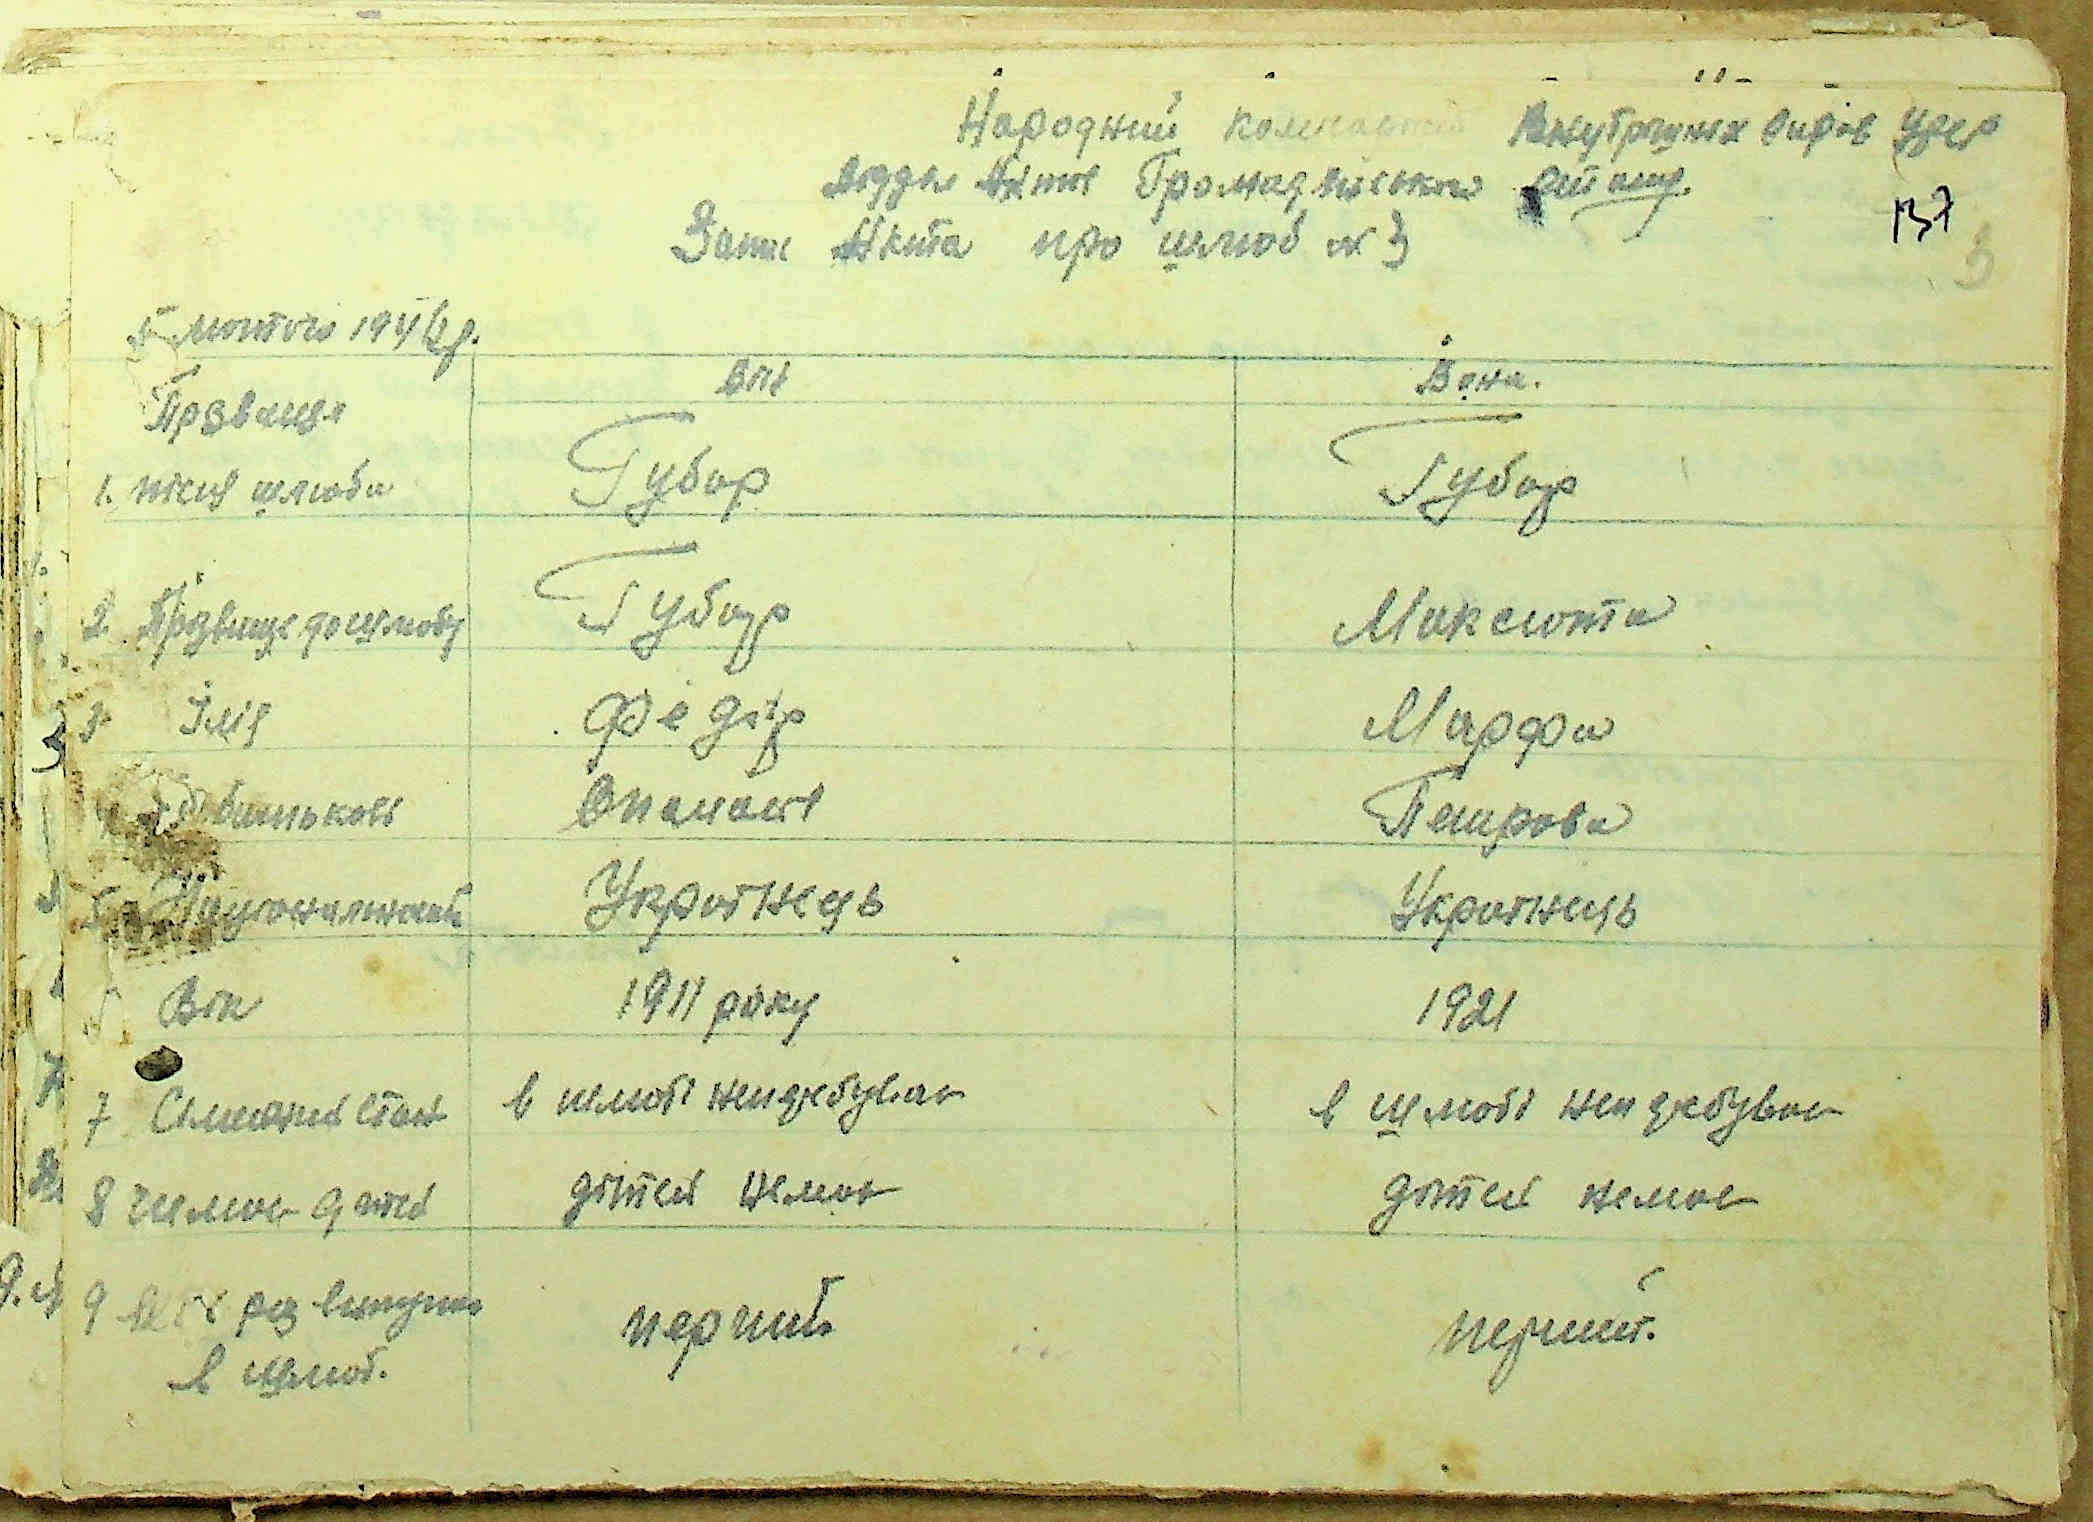 Народний Комісаріат Внутрішніх справ УРСР
Відділ Актів Громадянського стану.
Запис Акта про шлюб № 3
137
3
5 лютого 1944 р.
Він
Вона.
Прзвище
1. після шлюби Губар Губар
2 Прізвище до шлюбу Губар Максюта
3 Імя Федір Марфа
4 Побатькові Опанасов Петрова
5 Національність Украінець Украінець
Вік 1911 року 1921
7 Сімейний стан в шлюбі не пдебував в шлюбі не пдебувае
8 Чи мае дітей дітей немае дітей немае
9 раз вступив перший перший.
в шлюб.